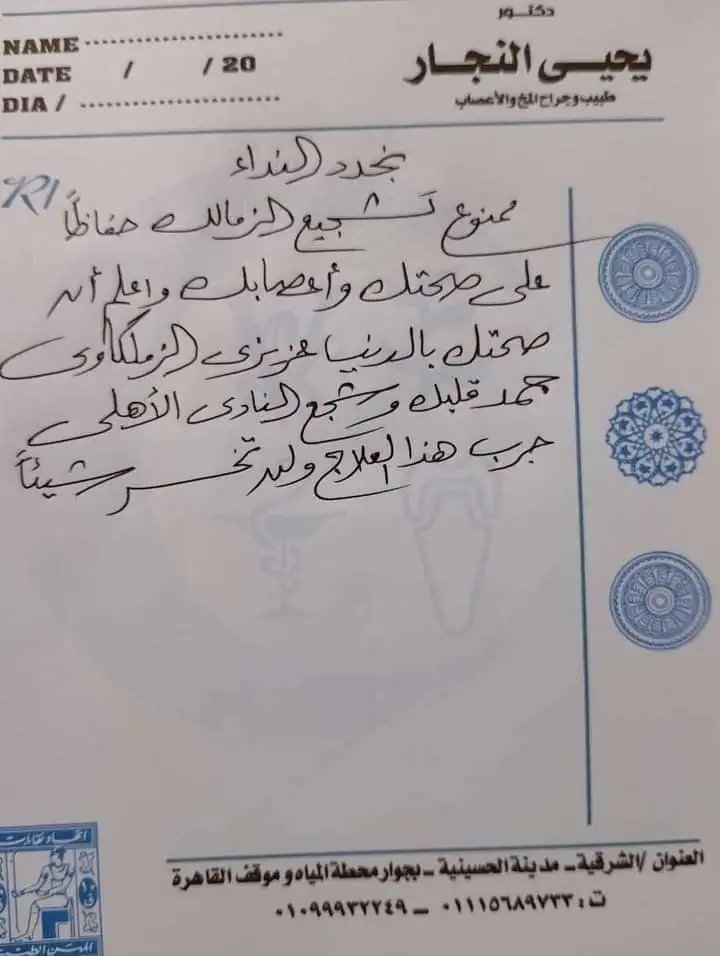 دكتور
يحيى النجار
طبيب وجراح المخ والأعصاب
NAME
DATE / / 20
DIA /
R/
نجدد النداء
ممنوع تشجيع الزمالك حفاظاً
على صحتك وأعصابك واعلم أن
صحتك بالدنيا عزيزى الزملكاوى
جمد قلبك وشجع النادى الأهلى
جرب هذا العلاج ولن تخسر شيئاً
اتحاد نقابات
المهن الطبية
العنوان /الشرقية - مدينة الحسينية - بجوار محطة المياه و موقف القاهرة
ت : ٠١١١٥٦٨٩٧٣٣ - ٠١٠٩٩٩٣٢٢٤٩